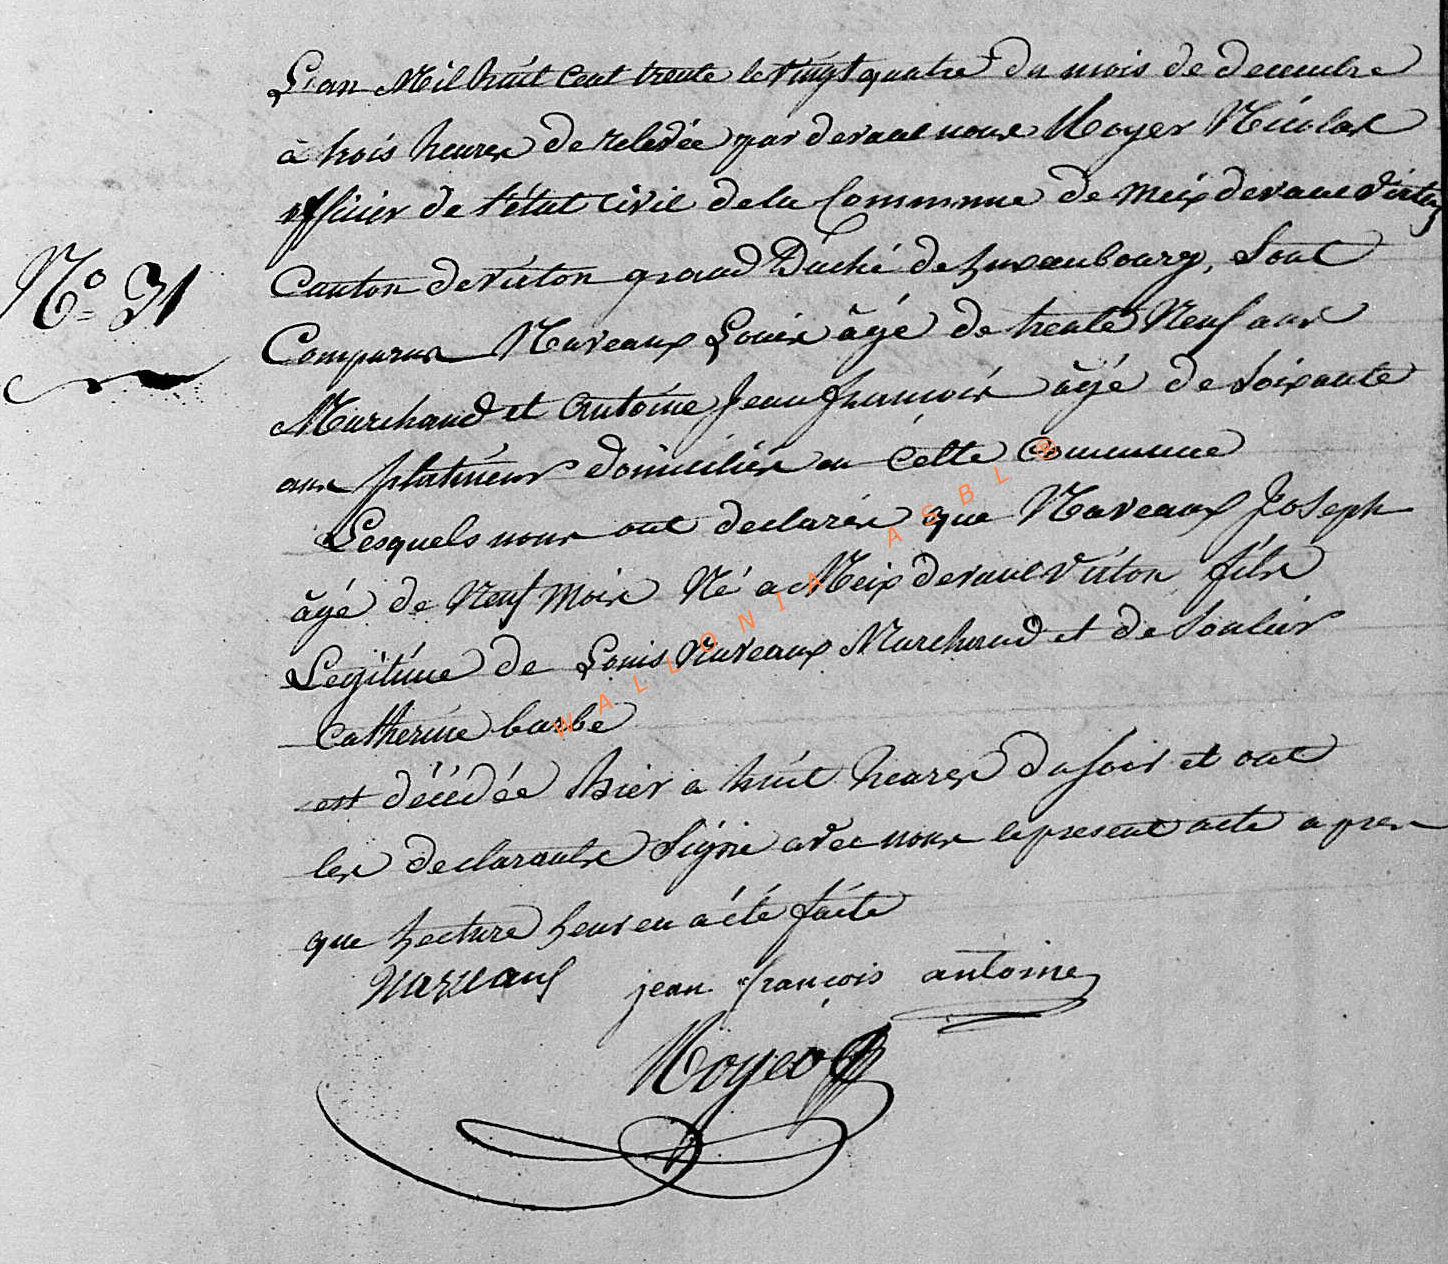 L'an Mil huit Cent trente le vingt quatre du mois de decembre
à trois heures de relevée par devant nous Moyer Nicolas
officier de l'état civil de la Commune de Meix devant Virton
Canton de Virton grand Duché de Luxembourg, Sont
N° 31
Comparus Naveaux Louis âgé de trente Neuf ans
Marchand et Antoine Jean françois âgé de soixante
ans platineur domiciliés en Cette Commune
Lesquels nous ont declarés que Naveaux Joseph
âgé de Neuf mois Né a Meix devant Virton fils
Legitime de Louis Naveaux Marchand et de Soulier
Catherine barbe
est décédée hier a huit heures du soir et ont
les declarants Signé avec nous le present acte apres
que Lecture Leur en a été faite
naveaux jean françois antoine
Moyer
WALLONIA ASBL ©